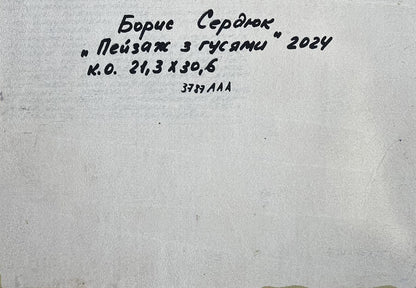 Борис Сердюк
„Пейзаж з гусями" 2024
к.о. 21,3х30,6
3787ААА